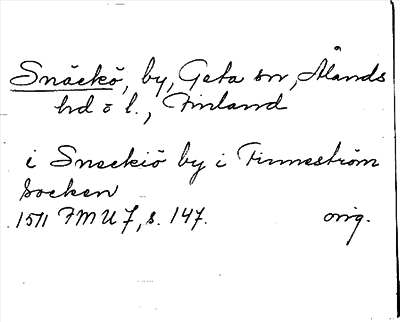 Snäckö, by, Geta sn, Ålands
hd o l., Finland
i Sneckiö by i Finneström
socken
1511 FMU 7, s. 147. orig.